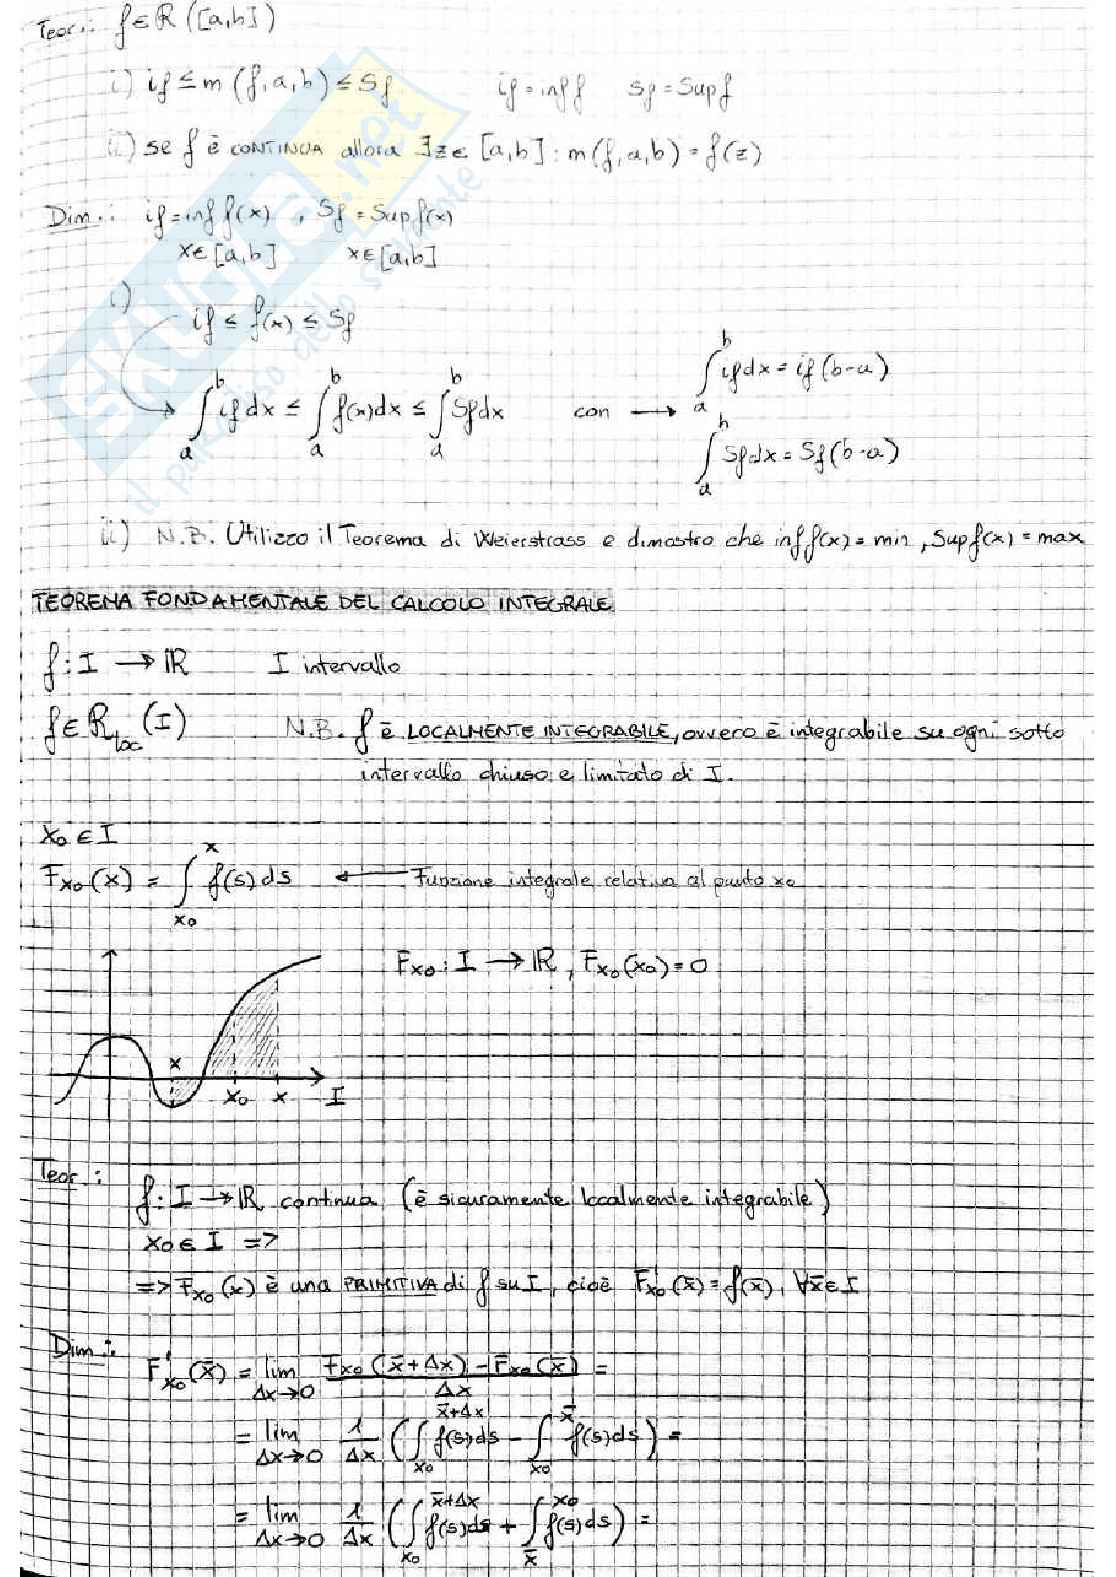 Teor.: f ∈ R ([a,b])
i) if ≤ m (f,a,b) ≤ Sf if = inf f Sf = Sup f
ii) se f è CONTINUA allora ∃z ∈ [a,b] : m(f,a,b) = f(z)
Dim.: if = inf f(x) , Sf = Sup f(x)
x∈[a,b] x∈[a,b]
i)
if ≤ f(x) ≤ Sf
∫_a^b if dx ≤ ∫_a^b f(x)dx ≤ ∫_a^b Sf dx con → ∫_a^b if dx = if (b-a)
∫_a^b Sf dx = Sf (b-a)
ii) N.B. Utilizzo il Teorema di Weierstrass e dimostro che inf f(x) = min , Sup f(x) = max
TEOREMA FONDAMENTALE DEL CALCOLO INTEGRALE
f : I → ℝ I intervallo
f ∈ R_loc (I) N.B. f è LOCALMENTE INTEGRABILE, ovvero è integrabile su ogni sotto
intervallo chiuso e limitato di I.
x₀ ∈ I
F_x₀ (x) = ∫_x₀^x f(s) ds ← Funzione integrale relativa al punto x₀
F_x₀ : I → ℝ , F_x₀ (x₀) = 0
x
x₀ x I
Teor.:
f : I → ℝ continua (è sicuramente localmente integrabile)
x₀ ∈ I =>
=> F_x₀ (x) è una PRIMITIVA di f su I, cioè F'_x₀ (x̄) = f(x̄), ∀x̄ ∈ I
Dim.:
F'_x₀ (x̄) = lim_{Δx→0} (F_x₀ (x̄+Δx) - F_x₀ (x̄)) / Δx =
= lim_{Δx→0} 1/Δx ( ∫_x₀^{x̄+Δx} f(s)ds - ∫_x₀^x̄ f(s)ds ) =
= lim_{Δx→0} 1/Δx ( ∫_x₀^{x̄+Δx} f(s)ds + ∫_x̄^x₀ f(s)ds ) =
SKUOLA.net
il paradiso dello studente